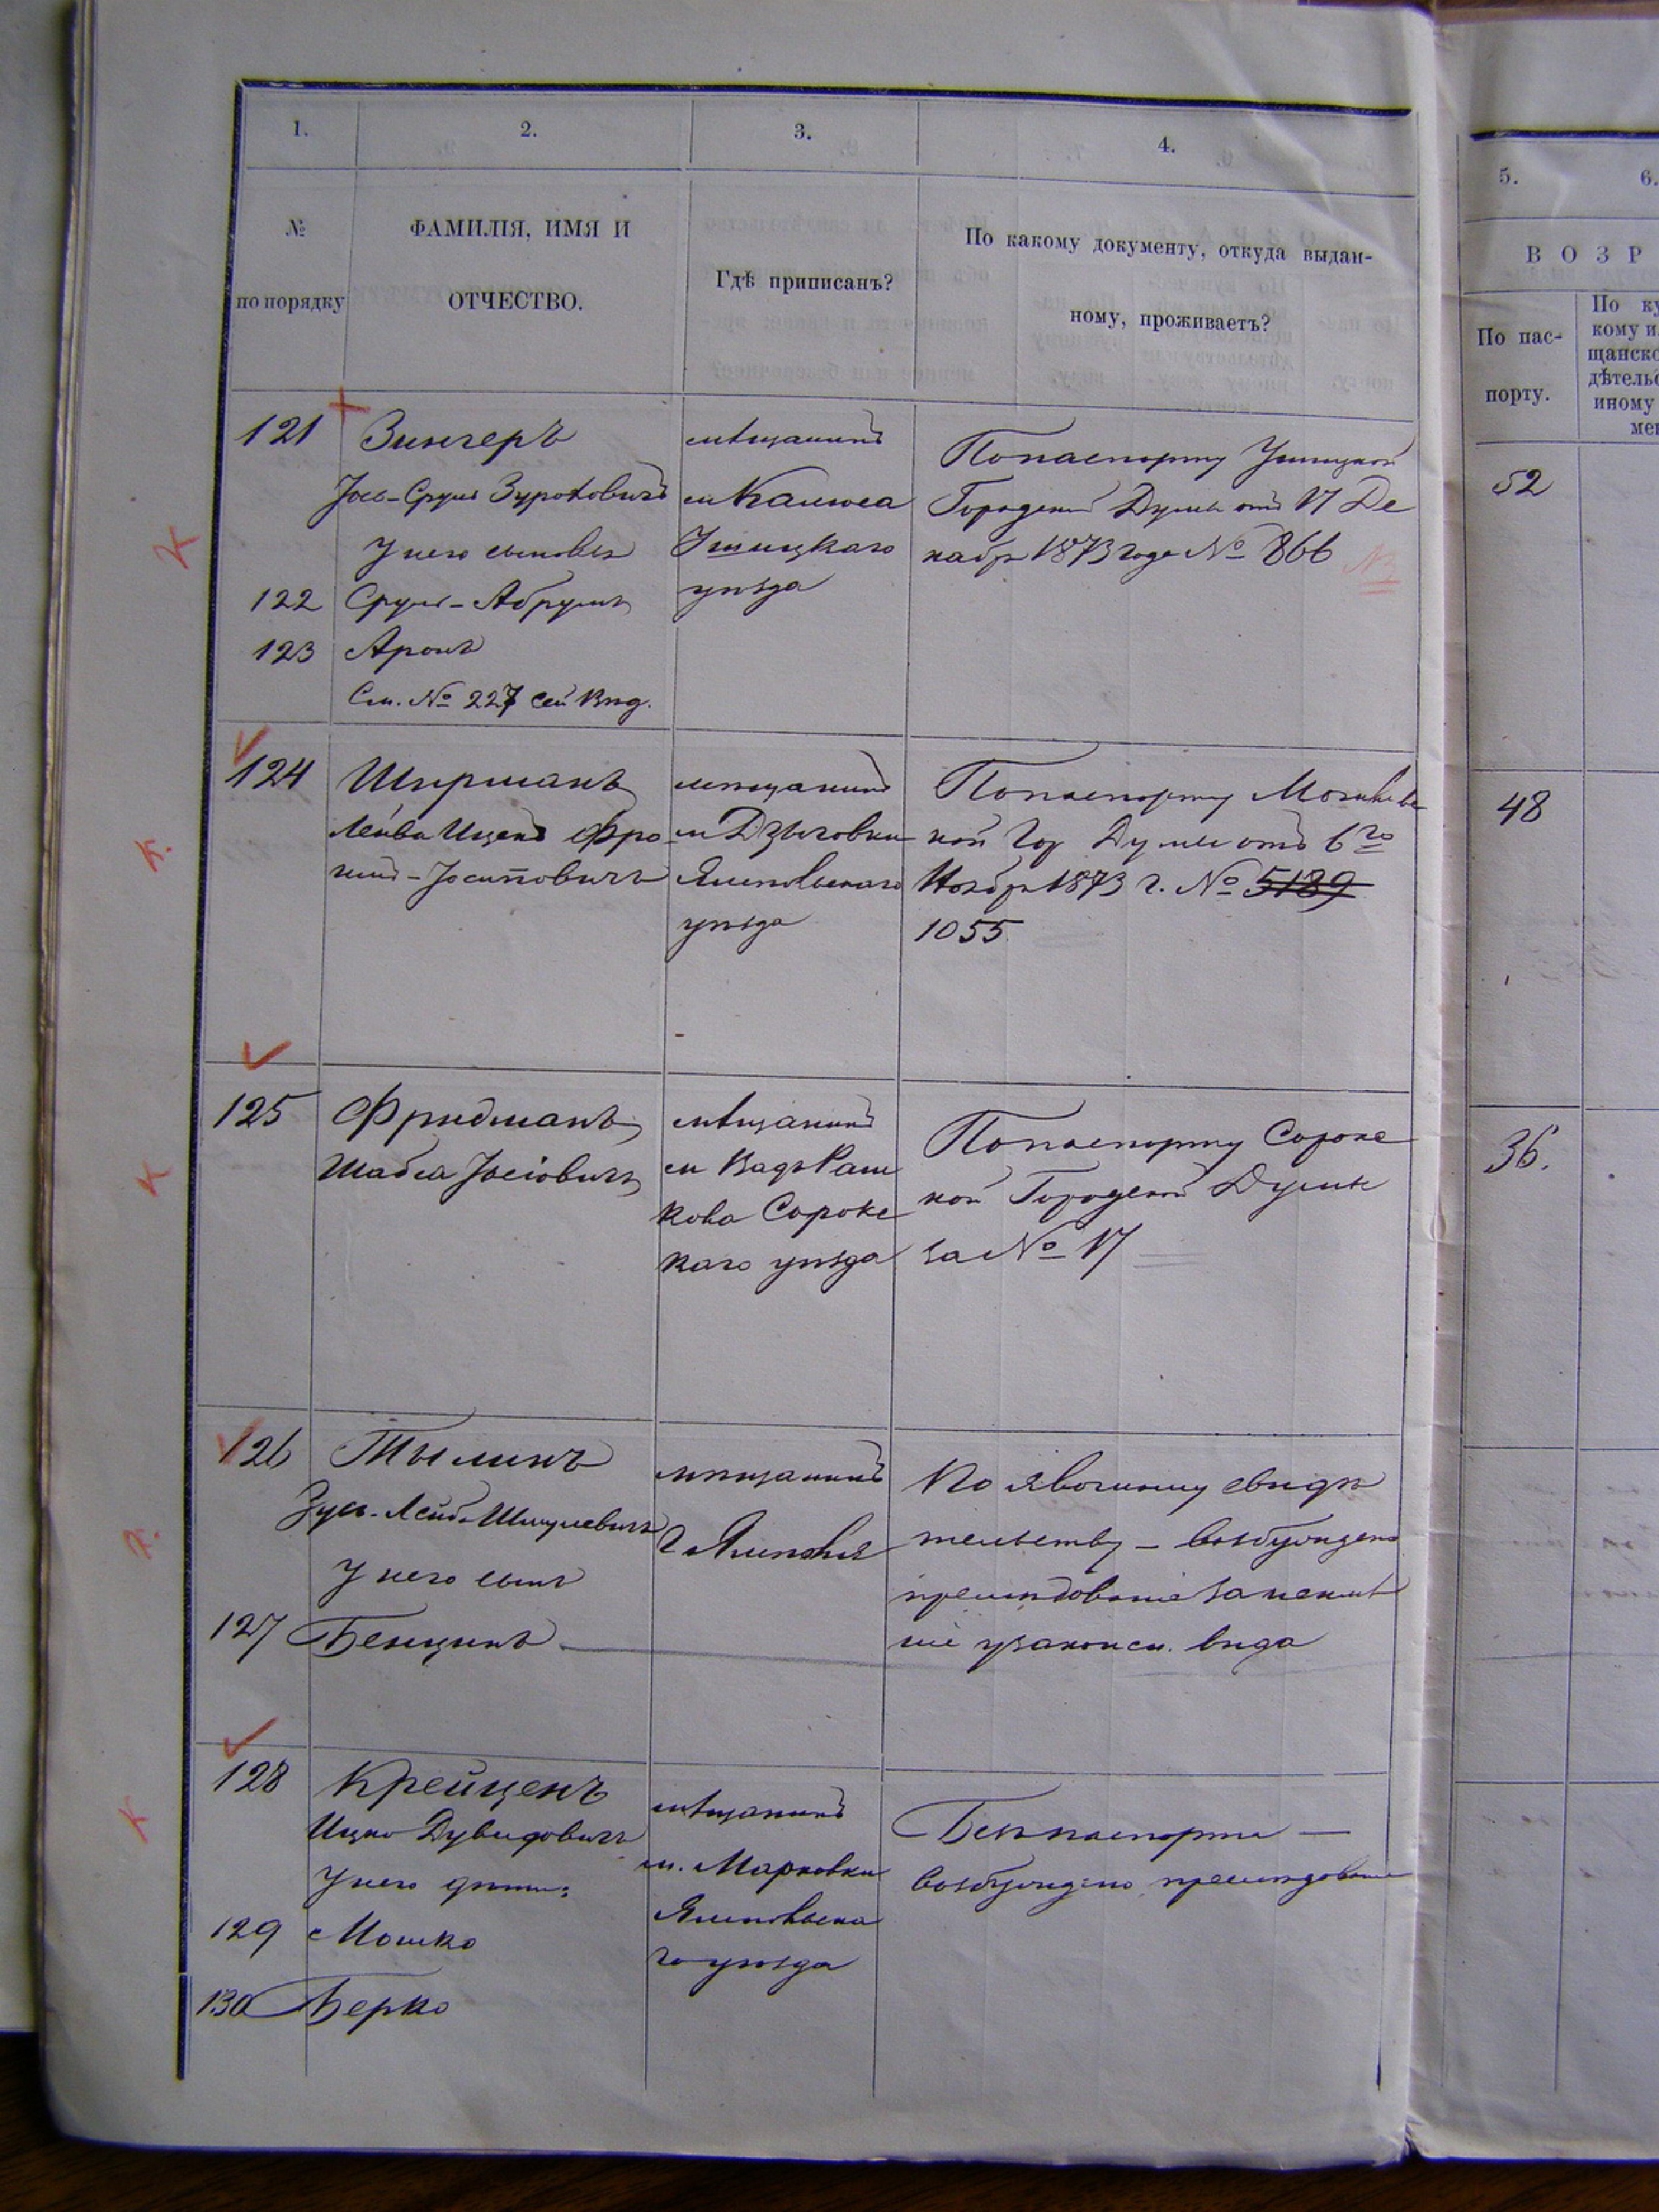 1.
2.
3.
4.
№
по порядку
ФАМИЛІЯ, ИМЯ И
ОТЧЕСТВО.
Гдѣ приписанъ?
По какому документу, откуда выдан-
ному, проживаетъ?
5.
6.
ВОЗР
По пас-
порту.
По ку
кому и
щанско
дѣтельс
иному
мен
121
Зингеръ
Іось-Сруль
У него сыновья
122 Сруль-Абрумъ
123 Аронъ
См. № 227 сей вѣд.
мѣщанинъ
м Калюса
Ушицкаго
уѣзда
По паспорту Ушицкой
Городской Думы отъ 17 Де
кабр 1873 года № 866
52
124
Ширманъ
Лейба Ицекъ Фро
имъ-Іосиповичъ
мѣщанинъ
м Дзыговки
Ямпольскаго
уѣзда
По паспорту Могилевс
кой Гор Думы отъ 6го
Ноябр 1873 г. № 5189
1055
48
125
Фридманъ
Шабса Іосіовичъ
мѣщанинъ
м Вадъ Раш
кова Сорокс
каго уѣзда
По паспорту Сорокс
кой Городской Думы
за № 17
36.
126
Тылинъ
Зусь-Лейба Шмулевичъ
У него сынъ
127 Бенционъ
мѣщанинъ
г Ямполя
По явочному свидѣ
тельству – возбуждено
преслѣдованіе за неимѣ
ніе узаконен. вида
128
Крейценъ
Ицко Дувидовичъ
У него дѣти:
129 Мошко
130 Берко
мѣщанинъ
м. Марковки
Ямпольска
го уѣзда
Безъ паспорта —
возбуждено преслѣдованіе